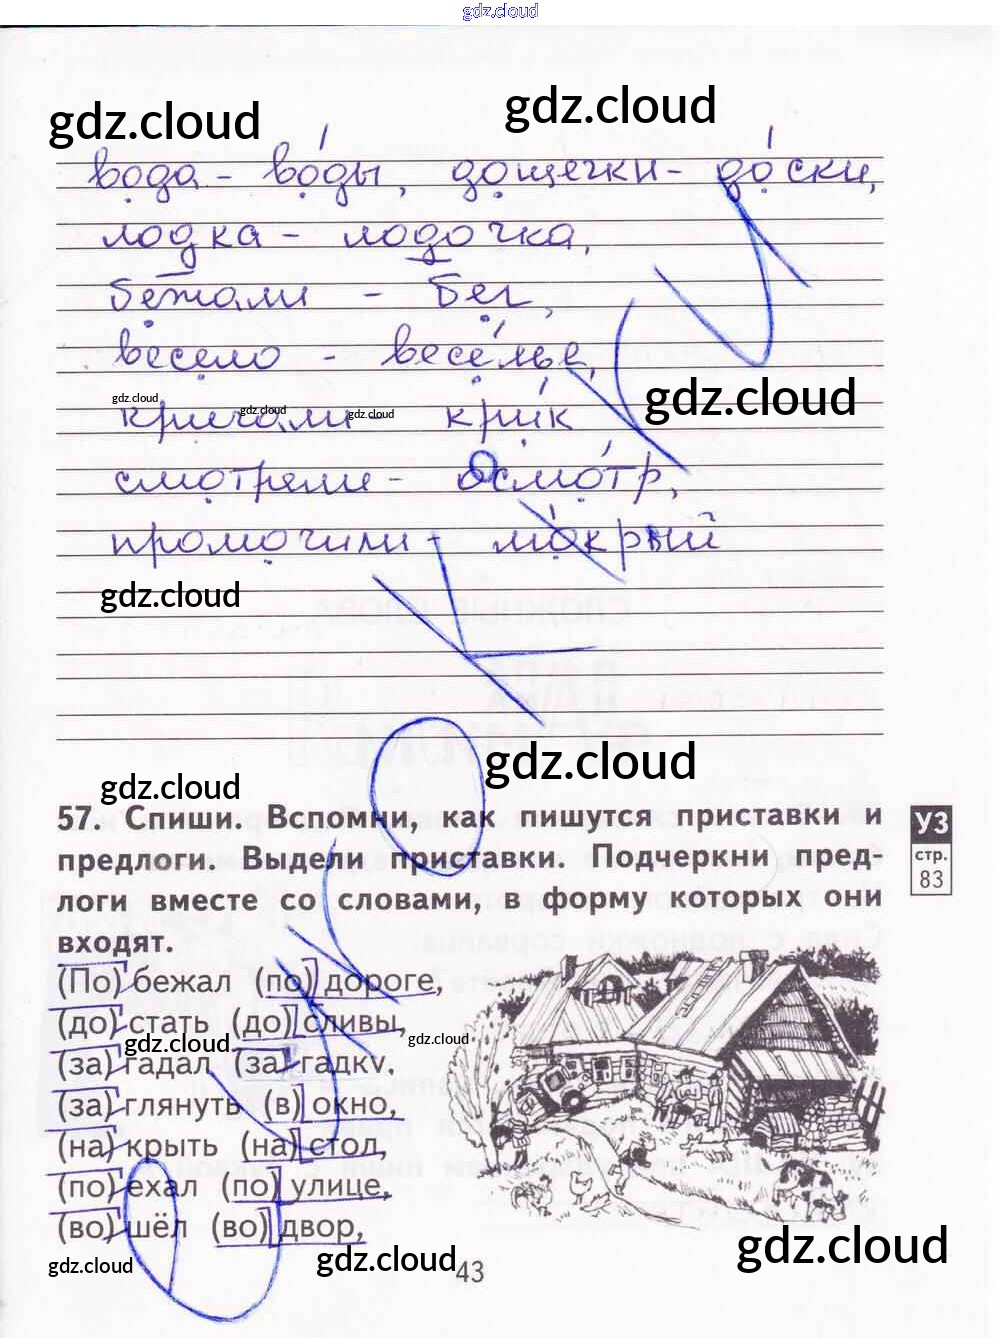 gdz.cloud
gdz.cloud
gdz.cloud
вода - воды, дощечки - доски,
лодка - лодочка,
бежали - бег,
весело - веселье,
gdz.cloud
gdz.cloud gdz.cloud gdz.cloud
кричали - крик
смотрели - осмотр,
промочили - мокрый
gdz.cloud
gdz.cloud
gdz.cloud
57. Спиши. Вспомни, как пишутся приставки и
предлоги. Выдели приставки. Подчеркни пред-
логи вместе со словами, в форму которых они
входят.
УЗ
стр.
83
(По) бежал (по) дороге,
(до) стать (до) сливы,
gdz.cloud gdz.cloud
(за) гадал (за) гадку.
(за) глянуть (в) окно,
(на) крыть (на) стол,
(по) ехал (по) улице,
(во) шёл (во) двор,
gdz.cloud gdz.cloud gdz.cloud
43